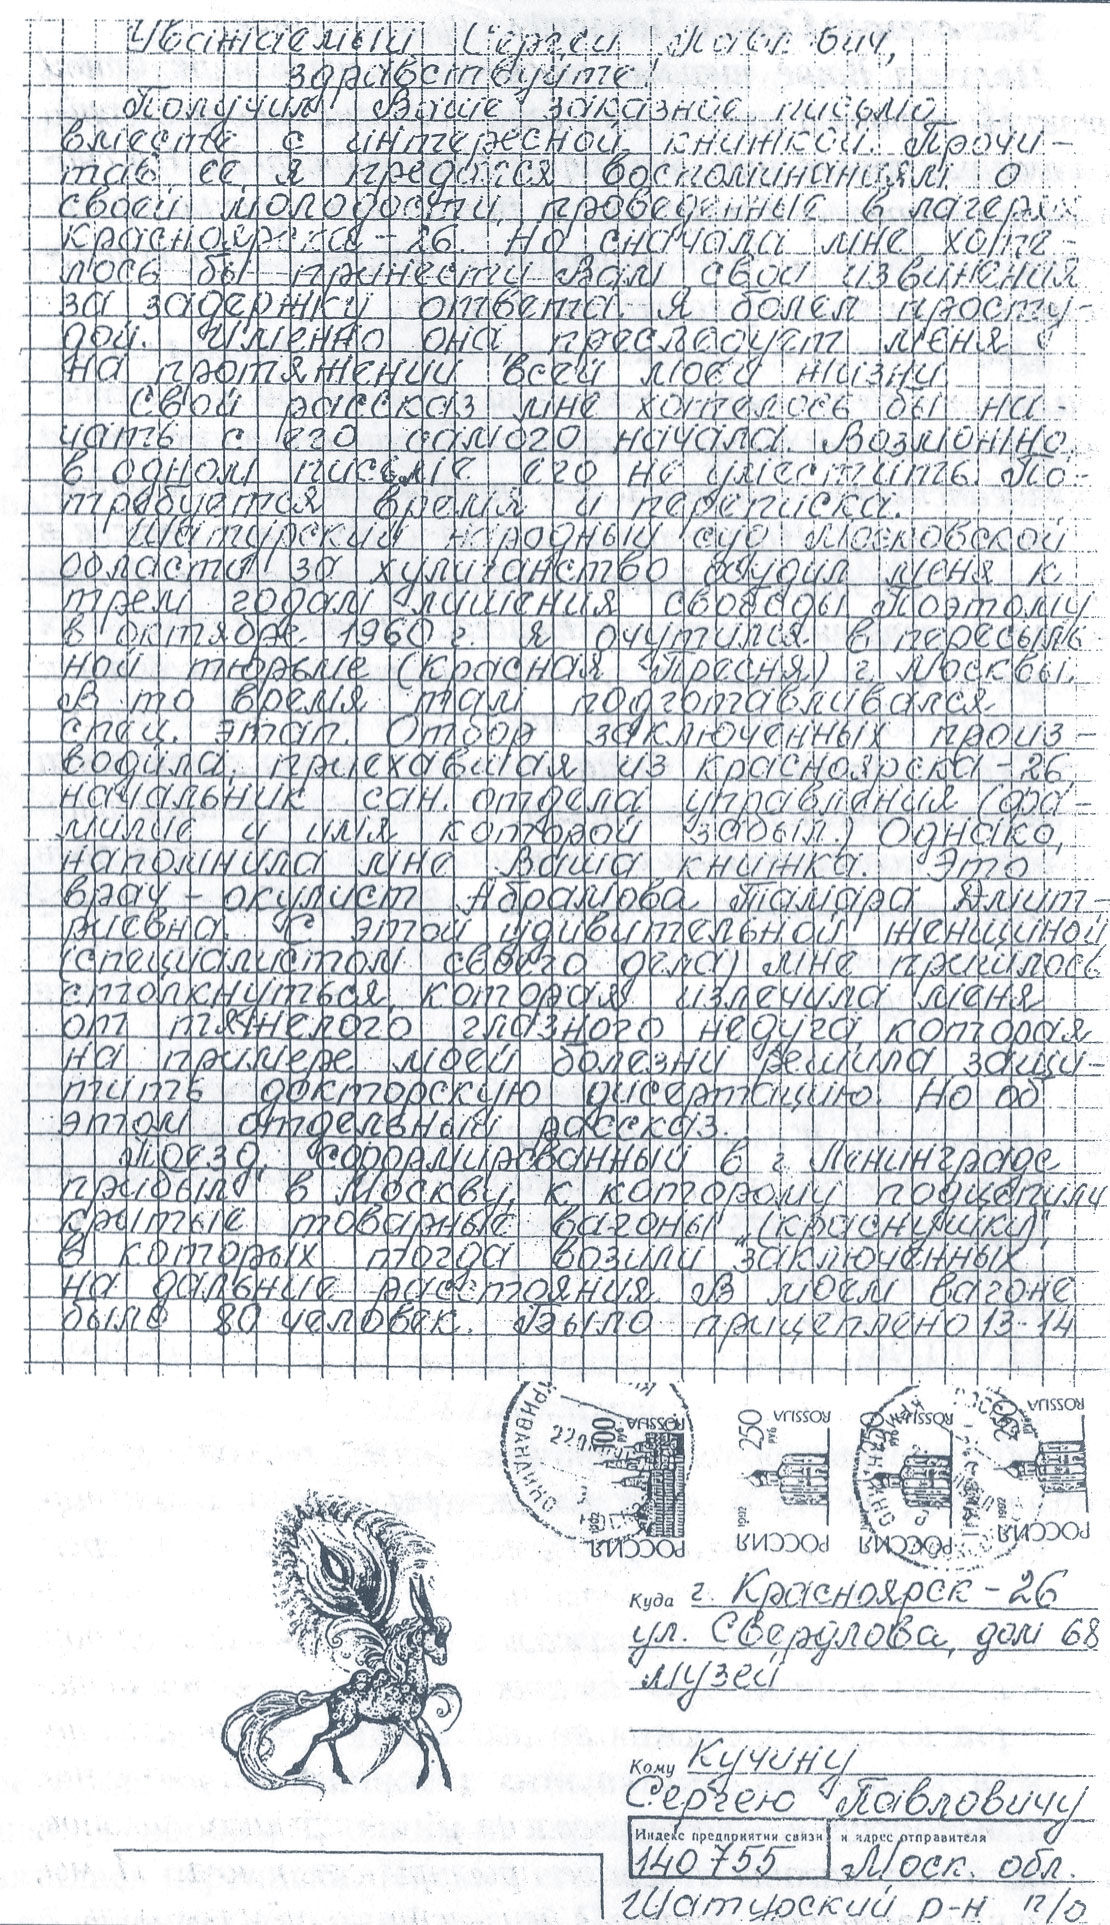 Уважаемый Сергей Павлович,
здравствуйте!
Получил Ваше заказное письмо
вместе с интересной книжкой. Прочи-
тав ее я предался воспоминаниям о
своей молодости проведенные в лагерях
Красноярска-26. Но сначала мне хоте-
лось бы принести Вам свои извинения
за задержку ответа. Я болел просту-
дой. Именно она преследует меня
на протяжении всей моей жизни.
Свой рассказ мне хотелось бы на-
чать с его самого начала. Возможно,
в одном письме его не уместить. По-
требуется время и переписка.
Шатурский народный суд Московской
области за хулиганство осудил меня к
трем годам лишения свободы. Поэтому
в октябре 1960 г. я очутился в пересыль
ной тюрьме (Красная Пресня) г. Москвы.
В то время там подготавливался
спец. этап. Отбор заключенных произ-
водила, приехавшая из Красноярска-26
начальник сан. отдела управления (фа-
милие и имя которой забыл) Однако,
напомнила мне Ваша книжка. Это
врач-окулист Абрамова Тамара Дмит-
риевна. С этой удивительной женщиной
(специалистом своего дела) мне пришлось
столкнуться которая излечила меня
от тяжелого глазного недуга, которая
на примере моей болезни решила защи-
тить докторскую дисертацию. Но об
этом отдельный рассказ.
Поезд, сформированный в г. Ленинграде
прибыл в Москву, к которому подцепили
крытые товарные вагоны „(краснушки)"
в которых тогда возили заключенных
на дальние расстояния. В моем вагоне
было 80 человек. Было прицеплено 13-14
ROSSIJA
100
1992
РОССИЯ
ROSSIJA
250
1992
РОССИЯ
ROSSIJA
250
РОССИЯ
ROSSIJA
1992
РОССИЯ
Куда г. Красноярск-26
ул. Свердлова, дом 68
музей
Кому Кучину
Сергею Павловичу
Индекс предприятия связи и адрес отправителя
140755 Моск. обл.
Шатурский р-н п/о